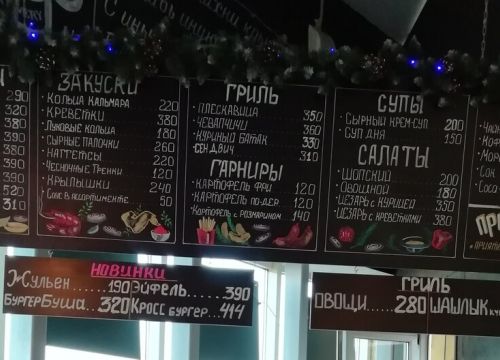 290
320
380
390
390
390
520
310
ЗАКУСКИ
· КОЛЬЦА КАЛЬМАРА 220
· КРЕВЕТКИ 380
· ЛУКОВЫЕ КОЛЬЦА 180
· СЫРНЫЕ ПАЛОЧКИ 260
· НАГГЕТСЫ 220
· ЧЕСНОЧНЫЕ ГРЕНКИ 120
· КРЫЛЫШКИ 240
· СОУС В АССОРТИМЕНТЕ 50
ГРИЛЬ
· ПЛЕСКАВИЦА 350
· ЧЕВАПЧИЧИ 360
· КУРИНЫЙ БАТАК 330
· СЕНДВИЧ 310
ГАРНИРЫ
· КАРТОФЕЛЬ ФРИ 120
· КАРТОФЕЛЬ ПО-ДЕР. 120
· КАРТОФЕЛЬ С РОЗМАРИНОМ 140
СУПЫ
· СЫРНЫЙ КРЕМ-СУП 200
· СУП ДНЯ 150
САЛАТЫ
· ШОПСКИЙ 200
· ОВОЩНОЙ 180
· ЦЕЗАРЬ С КУРИЦЕЙ 350
· ЦЕЗАРЬ С КРЕВЕТКАМИ 380
НОВИНКИ
ЖУЛЬЕН.......190 ЭЙФЕЛЬ......390
БУРГЕР БУША...320 КРОСС БУРГЕР...414
ГРИЛЬ
ОВОЩИ.....280 ШАШЛЫК